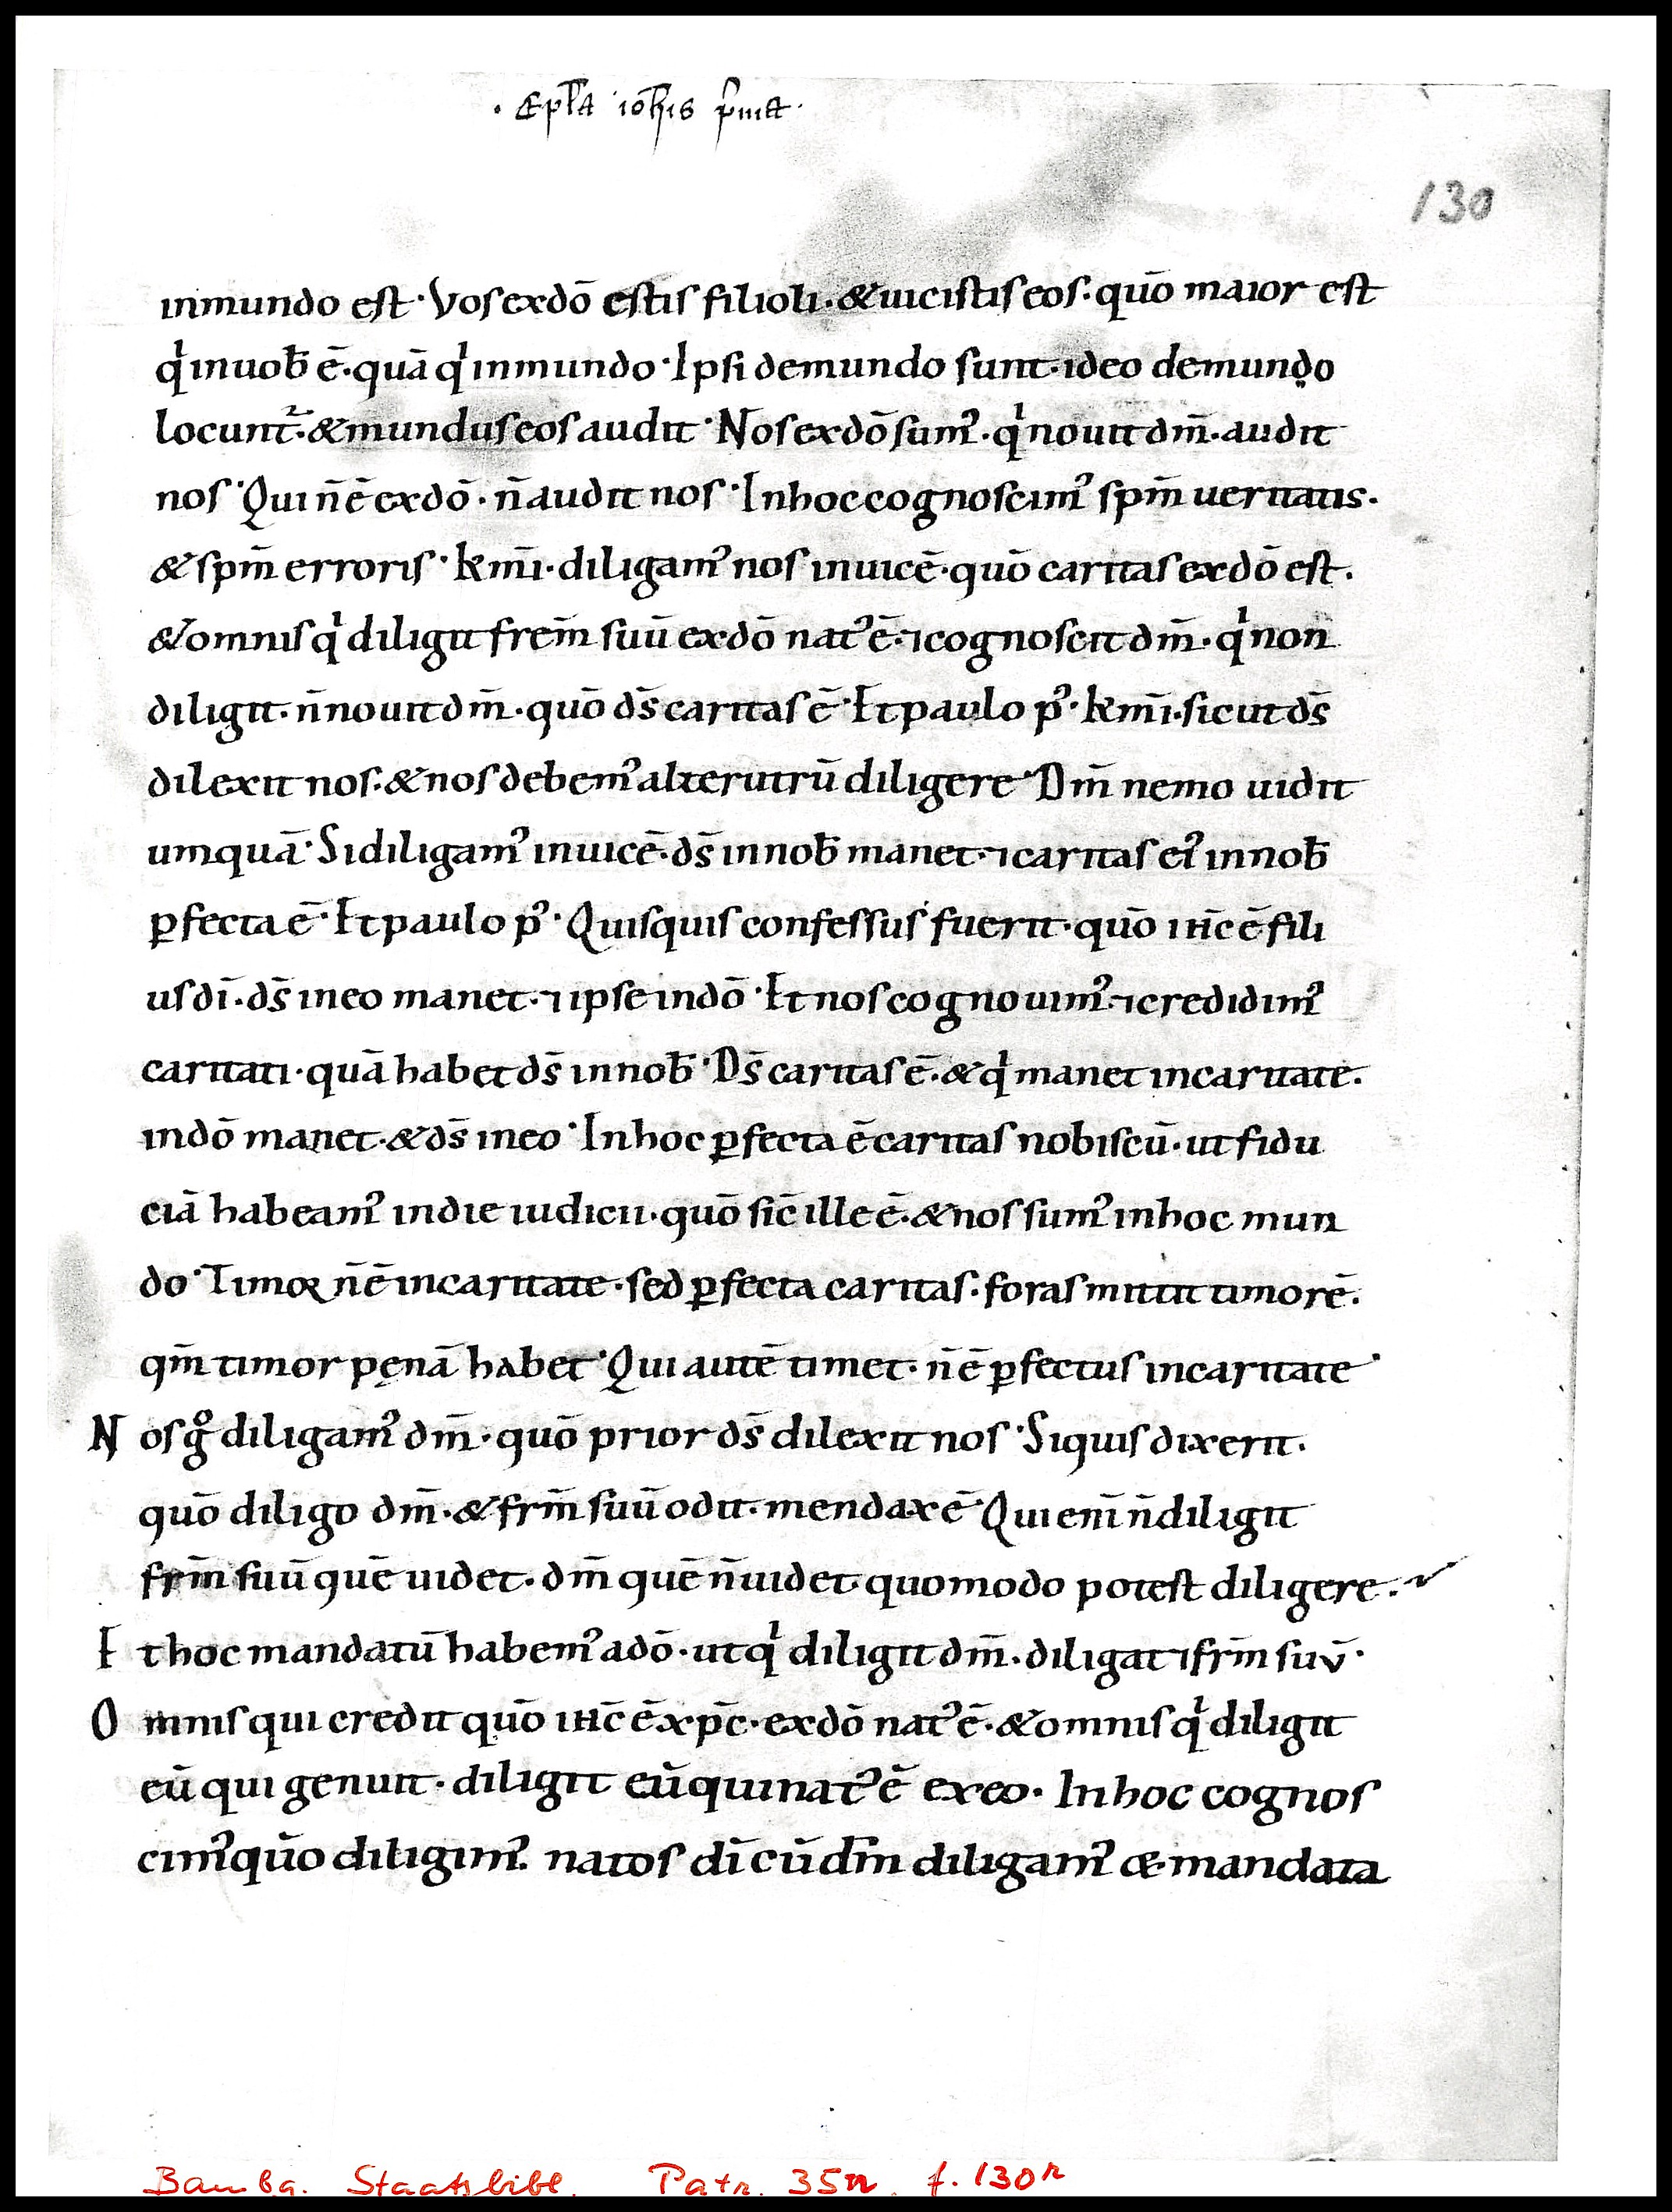 · Epl̄a ioh̄is p̄ma ·
130
inmundo est · Vos exdō estis filioli · & uicistis eos · quō maior est
qͥ inuob̄ ē · quā qͥ inmundo · Ipsi demundo sunt · ideo demundo
locunt᷑ · & mundus eos audit · Nos exdō sumꝰ · qͥ nouit dm̄ · audit
nos · Qui n̄ ē exdō · n̄ audit nos · Inhoc cognoscimꝰ spm̄ ueritatis ·
& spm̄ erroris · km̄i · diligamꝰ nos inuicē · quō caritas exdō est ·
& omnis qͥ diligit frem̄ suū exdō natꝰ ē · ⁊ cognoscit dm̄ · qͥ non
diligit · n̄ nouit dm̄ · quō ds̄ caritas ē · Et paulo pꝰ · km̄i · sicut ds̄
dilexit nos · & nos debemꝰ alterutrū diligere · Dm̄ nemo uidit
umquā · Si diligamꝰ inuicē · ds̄ innob̄ manet · ⁊ caritas eiꝰ innob̄
ꝑfecta ē · Et paulo pꝰ · Quisquis confessus fuerit · quō ihc̄ ē fili
us dī · ds̄ ineo manet · ⁊ ipse indō · Et nos cognouimꝰ · ⁊ credidimꝰ
caritati · quā habet ds̄ innob̄ · Ds̄ caritas ē · & qͥ manet incaritate ·
indō manet · & ds̄ ineo · Inhoc ꝑfecta ē caritas nobiscū · ut fidu
ciā habeamꝰ indie iudicii · quō sic̄ ille ē · & nos sumꝰ inhoc mun
do · Timor n̄ ē incaritate · sed ꝑfecta caritas · foras mittit timorē ·
qm̄ timor pęnā habet · Qui autē timet · n̄ ē ꝑfectus incaritate ·
Nos gͦ diligamꝰ dm̄ · quō prior ds̄ dilexit nos · Siquis dixerit ·
quō diligo dm̄ · & frm̄ suū odit · mendax ē · Qui enī n̄ diligit
frm̄ suū quē uidet · dm̄ quē n̄ uidet quomodo potest diligere ·
Et hoc mandatū habemꝰ adō · ut qͥ diligit dm̄ · diligat ⁊ frm̄ suū ·
Omnis qui credit quō ihc̄ ē xpc̄ · exdō natꝰ ē · & omnis qͥ diligit
eū qui genuit · diligit eū qui natꝰ ē exeo · Inhoc cognos
cimꝰ quō diligimꝰ natos dī cū dm̄ diligamꝰ & mandata
Bamba. Staatsbibl. Patr. 35n. f. 130r